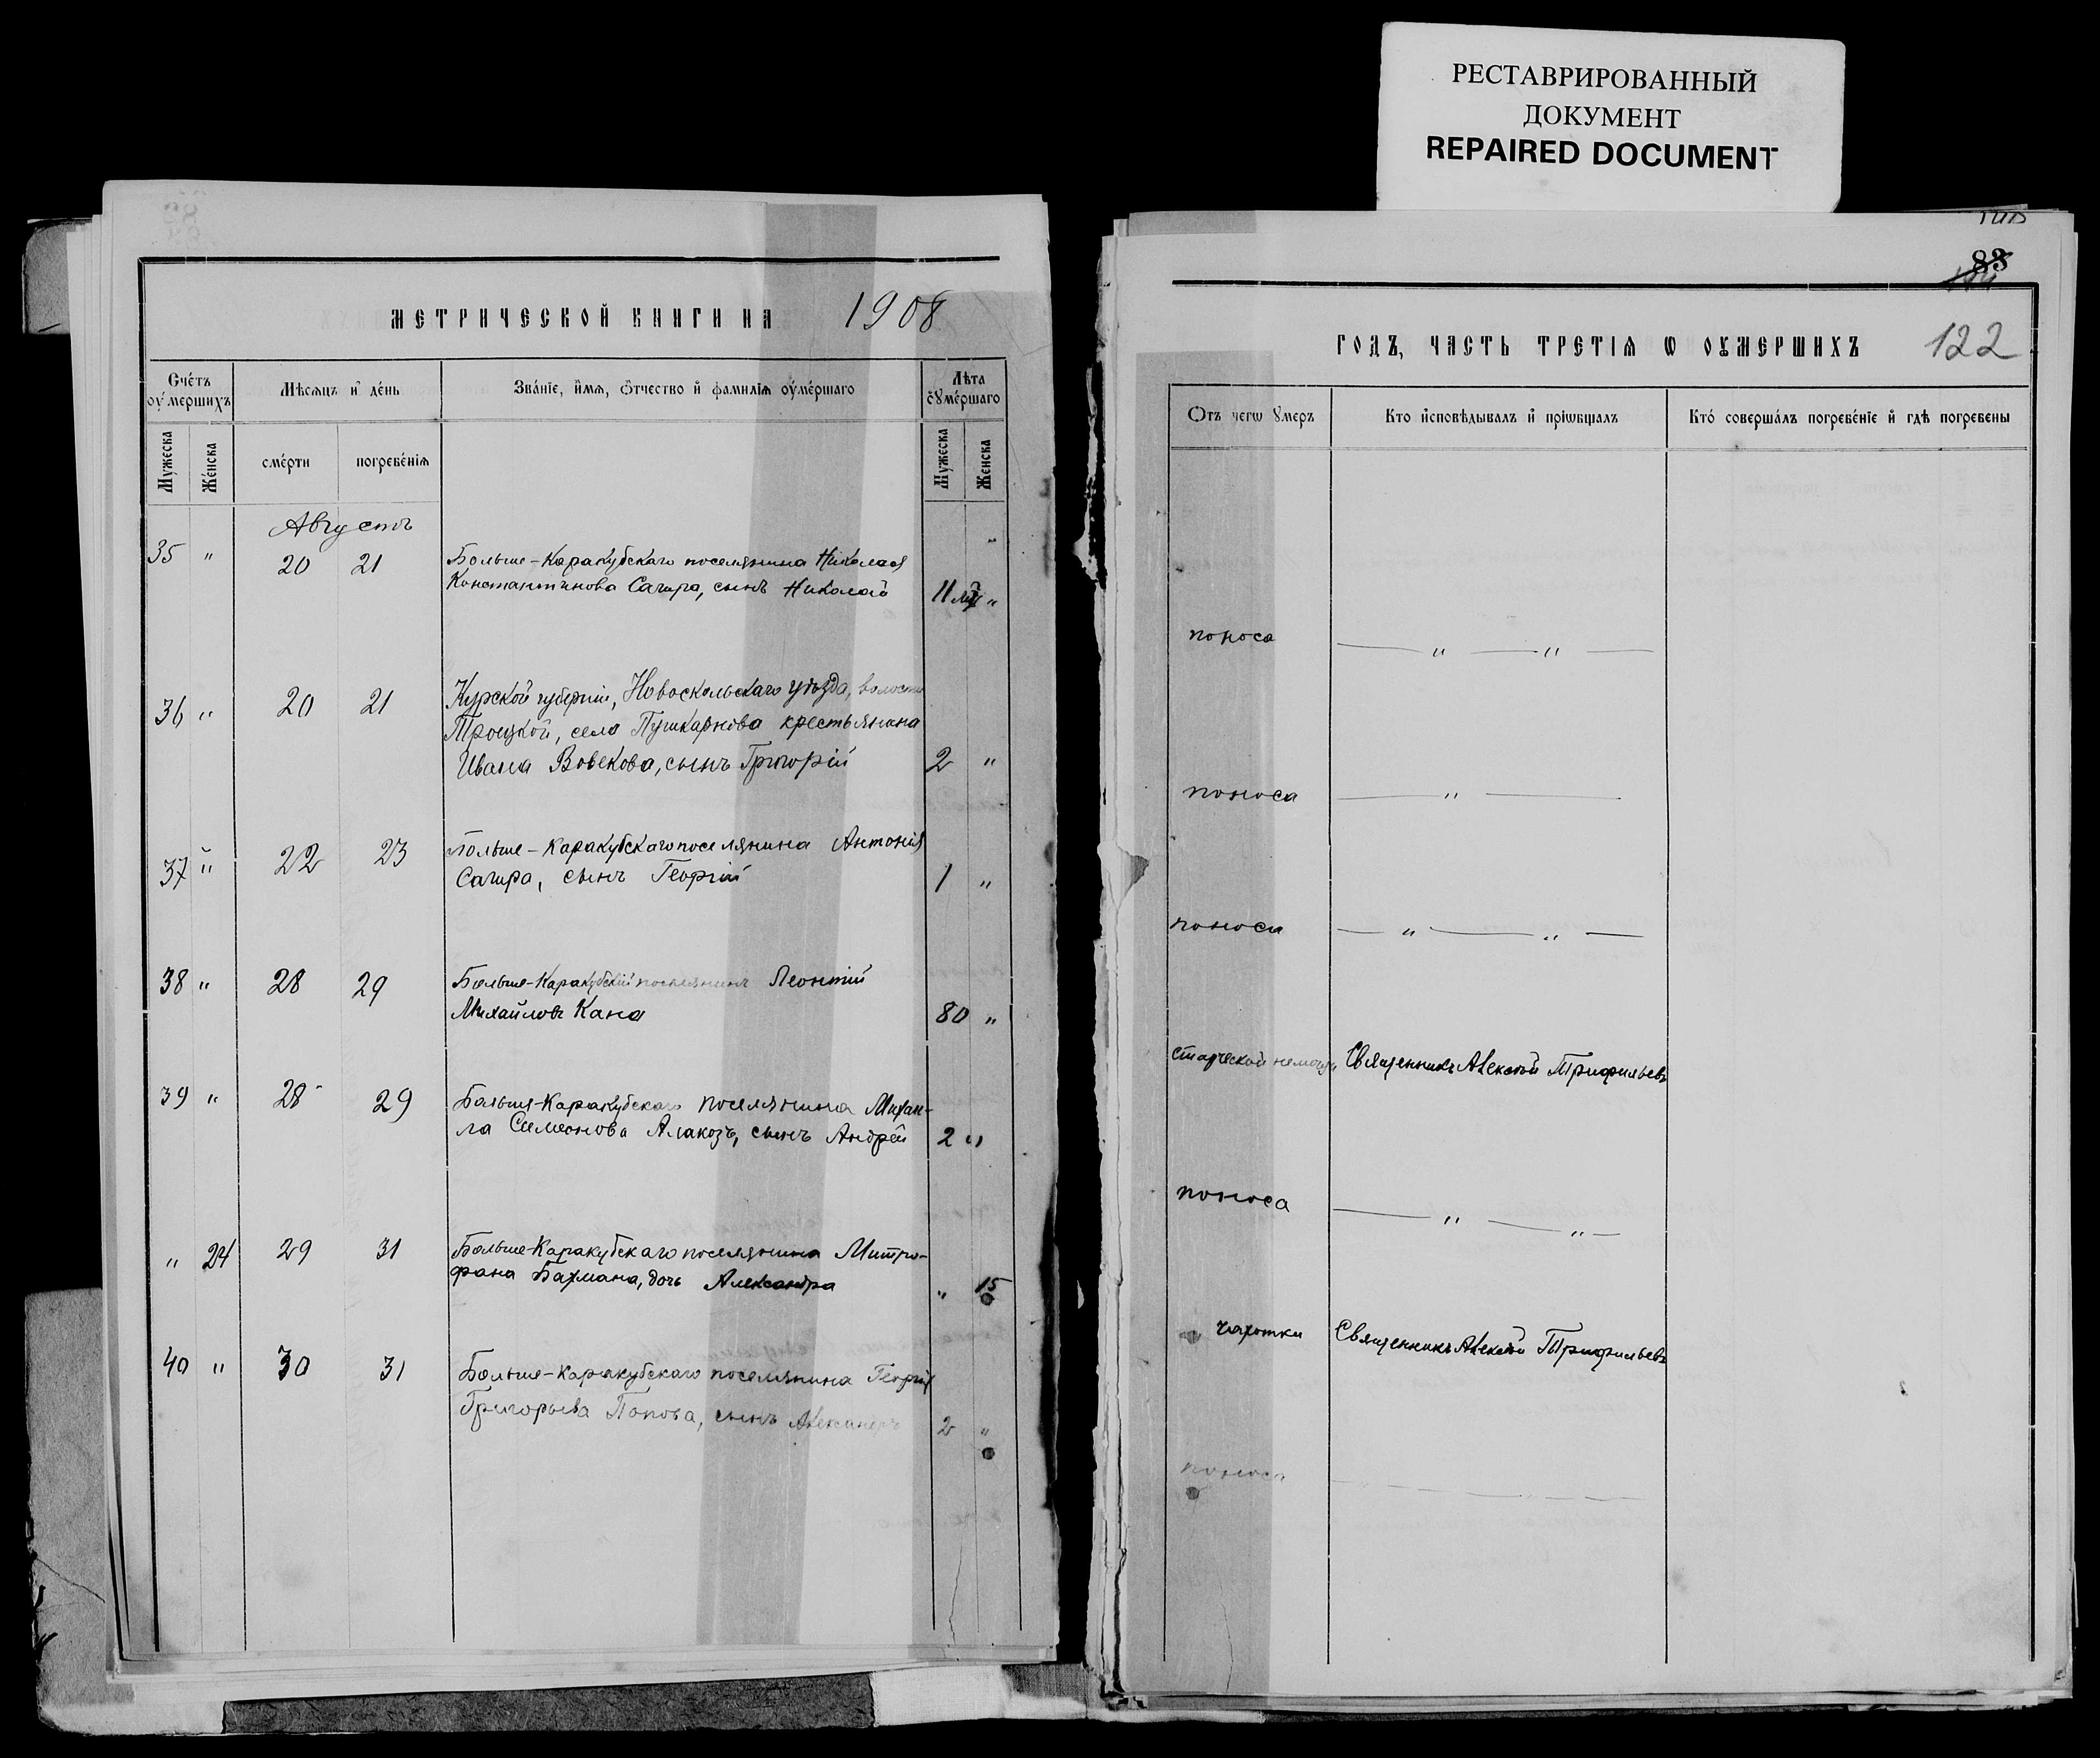 РЕСТАВРИРОВАННЫЙ
ДОКУМЕНТ
REPAIRED DOCUMENT
МЕТРИЧЕСКОЙ КНИГИ НА 1908
Счетъ оумершихъ
Мѣсяцъ и день
Званіе, имя, ѿчество и фамилія оумершаго
Лѣта оумершаго
Мужеска
Женска
смерти
погребенія
Мужеска
Женска
Августъ
35 " 20 21 Больше-Каракубскаго поселянина Николая
Константинова Сагира, сынъ Николай 11 "
36 " 20 21 Курской губерніи, Новоскольскаго уѣзда, волости
Троицкой, села Пушкарнова крестьянина
Ивана Вовекова, сынъ Григорій 2 "
37 " 22 23 Больше-Каракубскаго поселянина Антонія
Сагира, сынъ Георгій 1 "
38 " 28 29 Больше-Каракубскій поселянинъ Леонтій
Михайловъ Кана 80 "
39 " 28 29 Больше-Каракубскаго поселянина Михаи-
ла Симеонова Алакозъ, сынъ Андрей 2 "
" 24 29 31 Больше-Каракубскаго поселянина Митро-
фана Бахмана, дочь Александра " 15
40 " 30 31 Больше-Каракубскаго поселянина Георгія
Григорьева Попова, сынъ Александръ 2 "
83
ГОДЪ, ЧАСТЬ ТРЕТІЯ Ѡ ОУМЕРШИХЪ 122
Отъ чегѡ умеръ
Кто исповѣдывалъ и пріѡбщалъ
Кто совершалъ погребеніе и гдѣ погребены
поноса — " — " —
поноса — " —
поноса — " — " —
старческой немощи Священникъ Алексѣй Трифильевъ
поноса — " — " —
чахотки Священникъ Алексѣй Трифильевъ
поноса